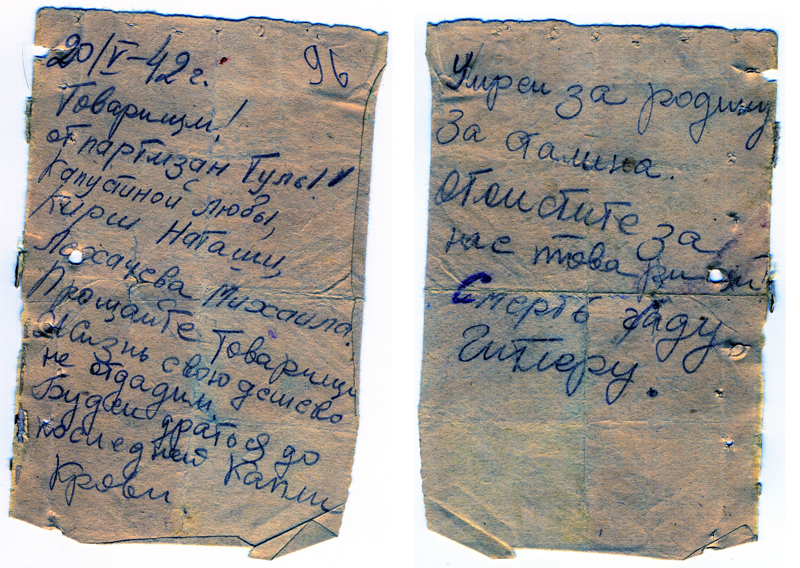 20/V-42 г.
96
Товарищи!
от партизан Тулы!!
Капустиной Любы,
Кирш Наташи,
Лехачева Михаила.
Прощайте Товарищи
Жизнь свою дешево
не отдадим.
Будем драться до
последней Капли
Крови
Умрем за родину
За Сталина.
Отомстите за
нас товарищи!
Смерть гаду
Гитлеру.